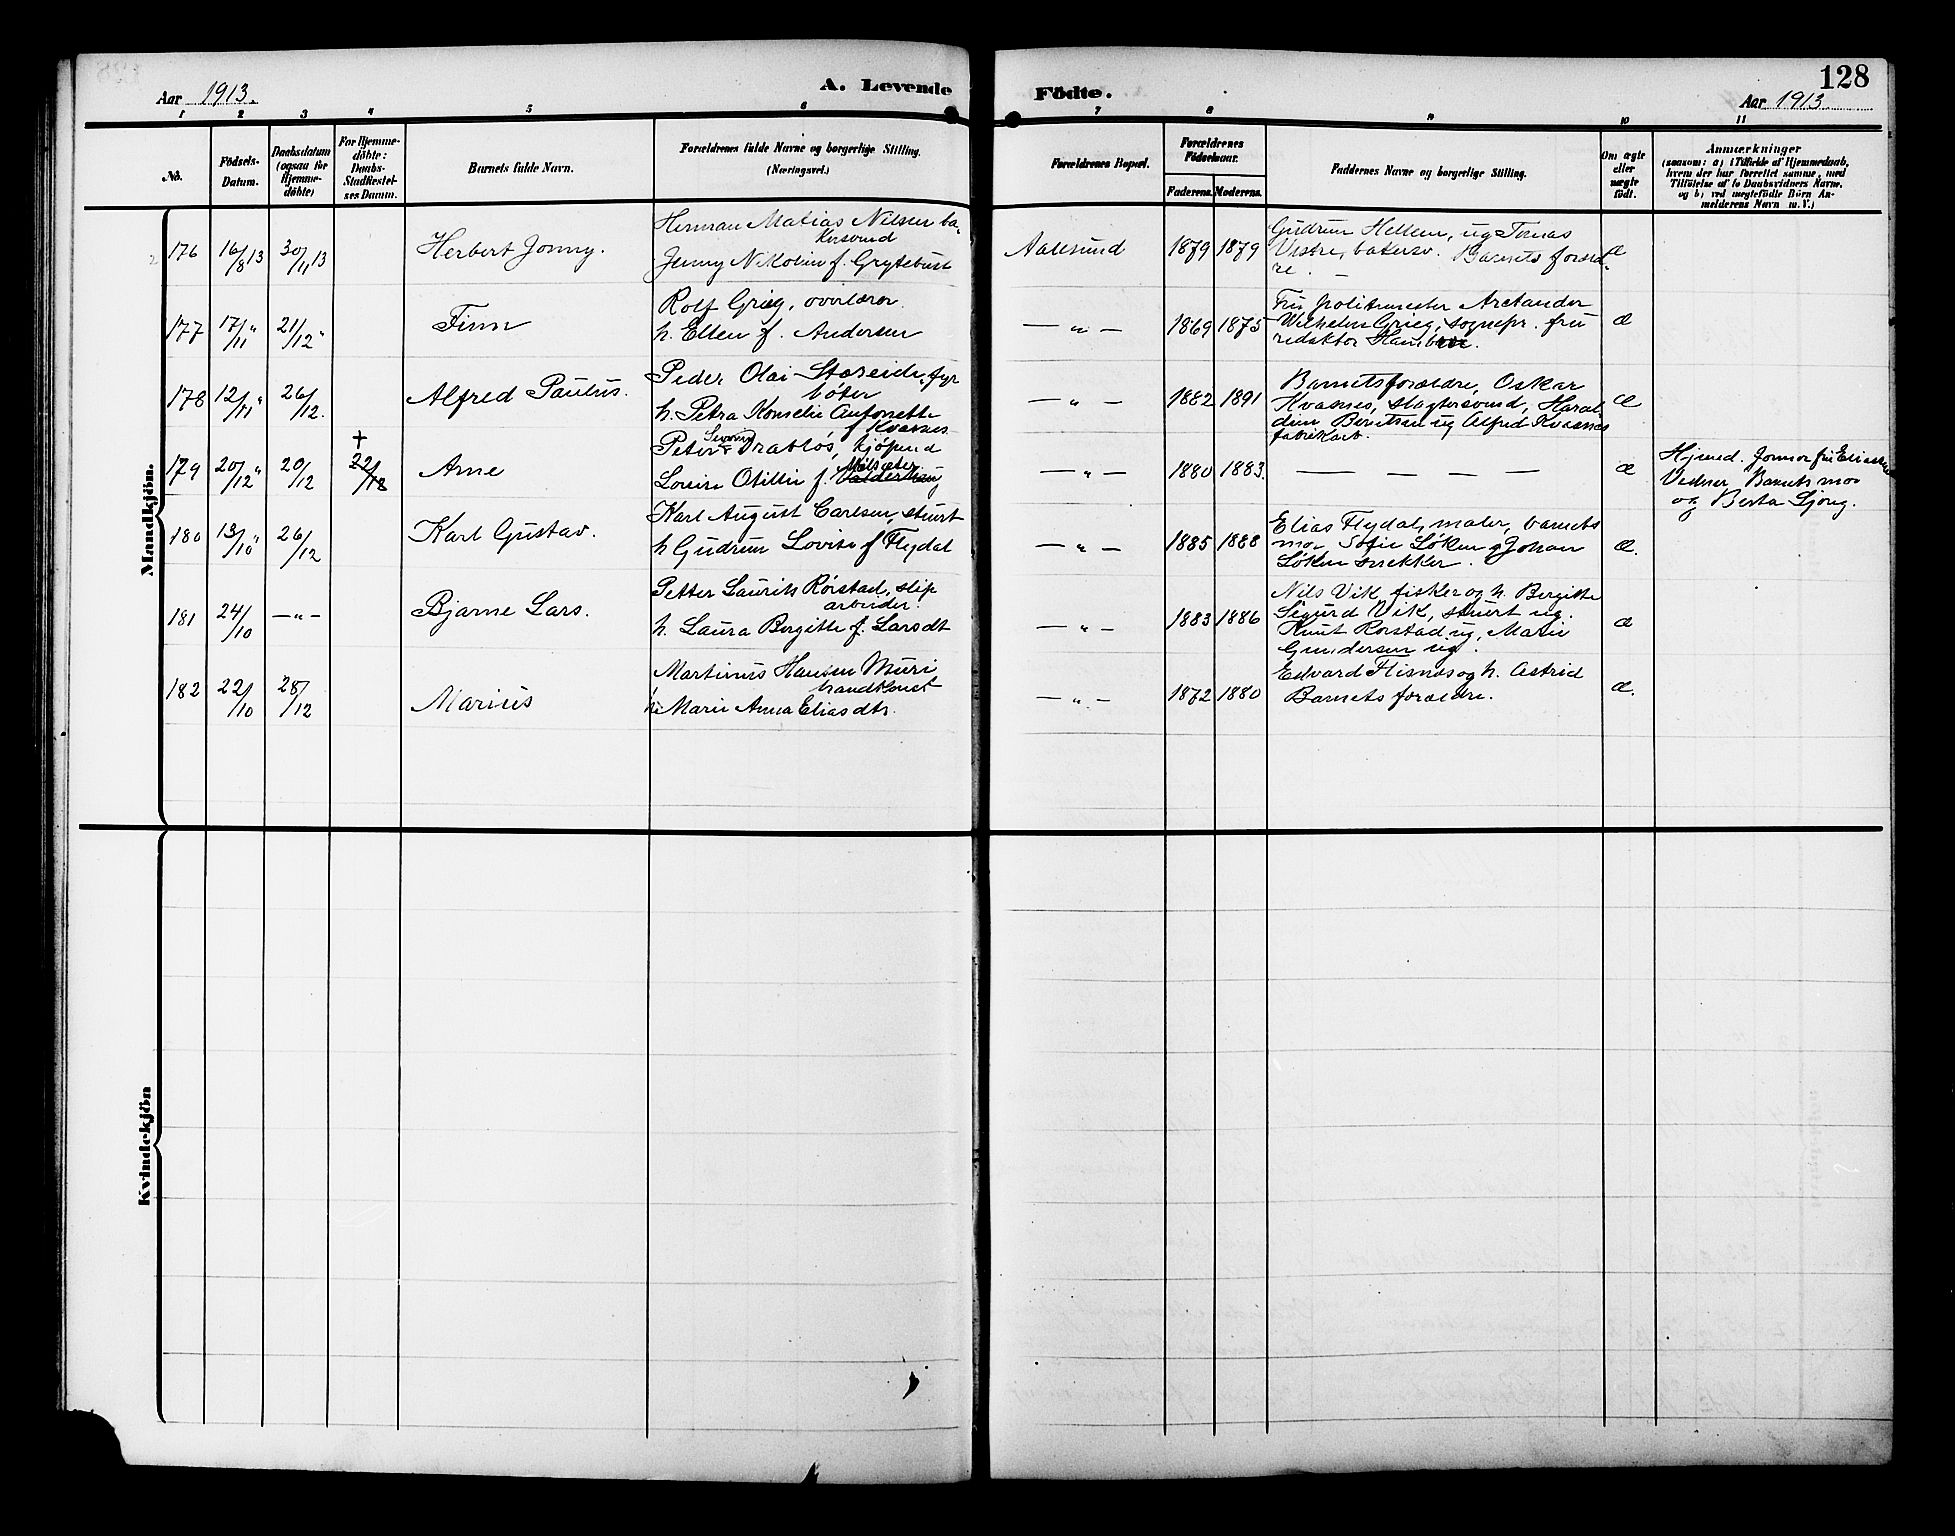 128
Aar 1913.
A. Levende
Födte.
Aar 1913
1 2 3 4 5 6
7 8 9 10 11
No.
Födsels-Datum.
Daabsdatum (ogsaa for Hjemme-döbte)
For Hjemme-döbte: Daabs-Stadfæstel-ses Datum.
Barnets fulde Navn.
Forældrenes fulde Navne og borgerlige Stilling. (Næringsvei.)
Forældrenes Bopæl.
Forældrenes Födselsaar.
Faderens. Moderens.
Faddernes Navne og borgerlige Stilling.
Om ægte eller uægte födt.
Anmærkninger
(saasom: a) i Tilfælde af Hjemmedaab,
hvem der har forrettet samme, med
Tilföielse af to Daabsvidners Navne,
og b) ved uægtefödte Börn An-
melderens Navn m. V.)
Mandkjön.
176 16/8 13 30/11 13 Herbert Jonny.
Herman Matias Nilsen ba-
kersvend
Jenny N Molvin f. Grytebust
Aalesund 1879 1879
Gudrun Hellem, ug Tomas
Vestre, bakersv. Barnets foræld-
re. æ
177 17/11 " 21/12 " Finn
Rolf Grieg, overlærer
h. Ellen f. Andersen
— " — 1869 1875
Fru politimester Arctander
Wilhelm Grieg, sognepr. fru
redaktör Hambro. æ
178 12/11 " 26/12. Alfred Paulus.
Peder Olai Storeide, fyr
böter
h. Petra Kornelie Antonette
f Kvasnes
— " — 1882 1891
Barnets forældre, Oskar
Kvasnes, slagtersvend, Haral-
dine Berntsen ug Alfred Kvasnes
fabrikarb. æ
179 20/12 " 20/12 + 22/12 Arne
Peter Drabløs, kjöpmd
Lovise Otilie f.
— " — 1880 1883. — — — — — æ
Hjmed. Jormor fru Eliassen
Vidner Barnets mor
og Berta Sjong.
180 13/10 " 26/12 Karl Gustav.
Karl August Carlsen, stuert
h Gudrun Lovise f Flydal
— " — 1885 1888
Elias Flydal, maler, barnets
mor, Sofie Løken og Johan
Løken snekker. æ.
181 24/10 —"— Bjarne Lars.
Petter Laurits Rörstad, slip
arbeider.
h. Laura Bergitte f. Larsdt
— " — 1883 1886
Nils Vik fisker og h. Bergitte
Sigurd Vik, stuert ug.
Knut Rorstad ug, Marie
Gundersen ug. æ
182 22/10 28/12 Marius
Martinus Hansen Muri
brandkonst
h. Marie Anna Eliasdtr.
— " — 1872 1880
Edvard Flisnes og h. Astrid
Barnets forældre. æ.
Kvindekjön